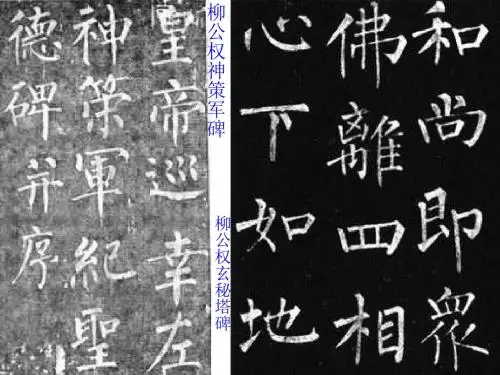 皇帝巡幸左
神策軍紀聖
德碑并序
柳公权神策军碑
柳公权玄秘塔碑
和尚即眾
佛離四相
心下如地